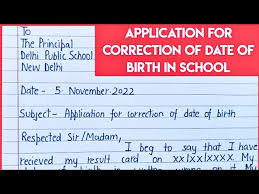 To
The Principal
Delhi Public School
New Delhi
APPLICATION FOR
CORRECTION OF DATE OF
BIRTH IN SCHOOL
Date - 5 November 2022
Subject- Application for correction of date of birth
Respected Sir/Madam,
I beg to say that I have
recieved my result card on xx|xx|xxxx. My
date of birth is written wrong on